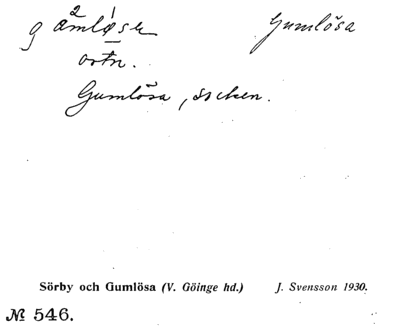 Gumlösa
ortn.
Gumlösa, socken.
Sörby och Gumlösa (V. Göinge hd.) J. Svensson 1930.
№ 546.